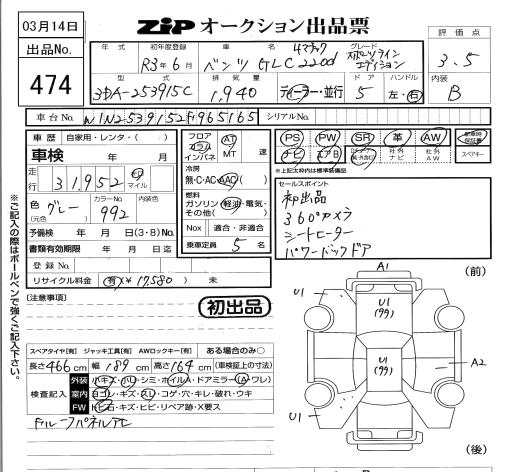 03月14日
ZIP オークション出品票
評価点
3.5
出品No.
474
年式
初年度登録
R3年6月
車名
ベンツ GLC220d 4マチック
グレード
スポーツライン
エディション
型式
3DA-253915C
排気量
1,940
ディーラー・並行
ドア
5
ハンドル
左・右
内装
B
車台No.
W1N2539152F965165
シリアルNo.
車歴
自家用・レンタ・( )
車検
年 月
走行
31,952
km
マイル
色
(元色)
グレー
カラーNo.
992
内装色
予備検 年 月 日(3・8)No.
書類有効期限 年 月 日迄
登録No.
リサイクル料金 (有)(¥17580) 未
フロア
コラム
インパネ
AT
MT
速
冷房
無・C・AC・AAC( )
燃料
ガソリン・軽油・電気・
その他( )
Nox
適合・非適合
乗車定員 5 名
PS
PW
SR
革
AW
ナビ
エアB
社外
ナビ
社外
AW
スペアキー
※上記太枠内は標準装備品
セールスポイント
初出品
360°カメラ
シートヒーター
パワーバックドア
※ご記入の際はボールペンで強くご記入下さい。
(注意事項)
初出品
スペアタイヤ[有] ジャッキ工具[有] AWロックキー[有] ある場合のみ○
長さ466cm 幅189cm 高さ164cm (車検証上の寸法)
検査記入
外装
小キズ・小U・シミ・ホイルA・ドアミラー(A・ワレ)
室内
ヨゴレ・キズ・スレ・コゲ・穴・キレ・破れ・ウキ
FW
トビ石・キズ・ヒビ・リペア跡・X要ス
(前)
A1
U1
U1
(99)
U1
(99)
A2
U1
U1
(後)